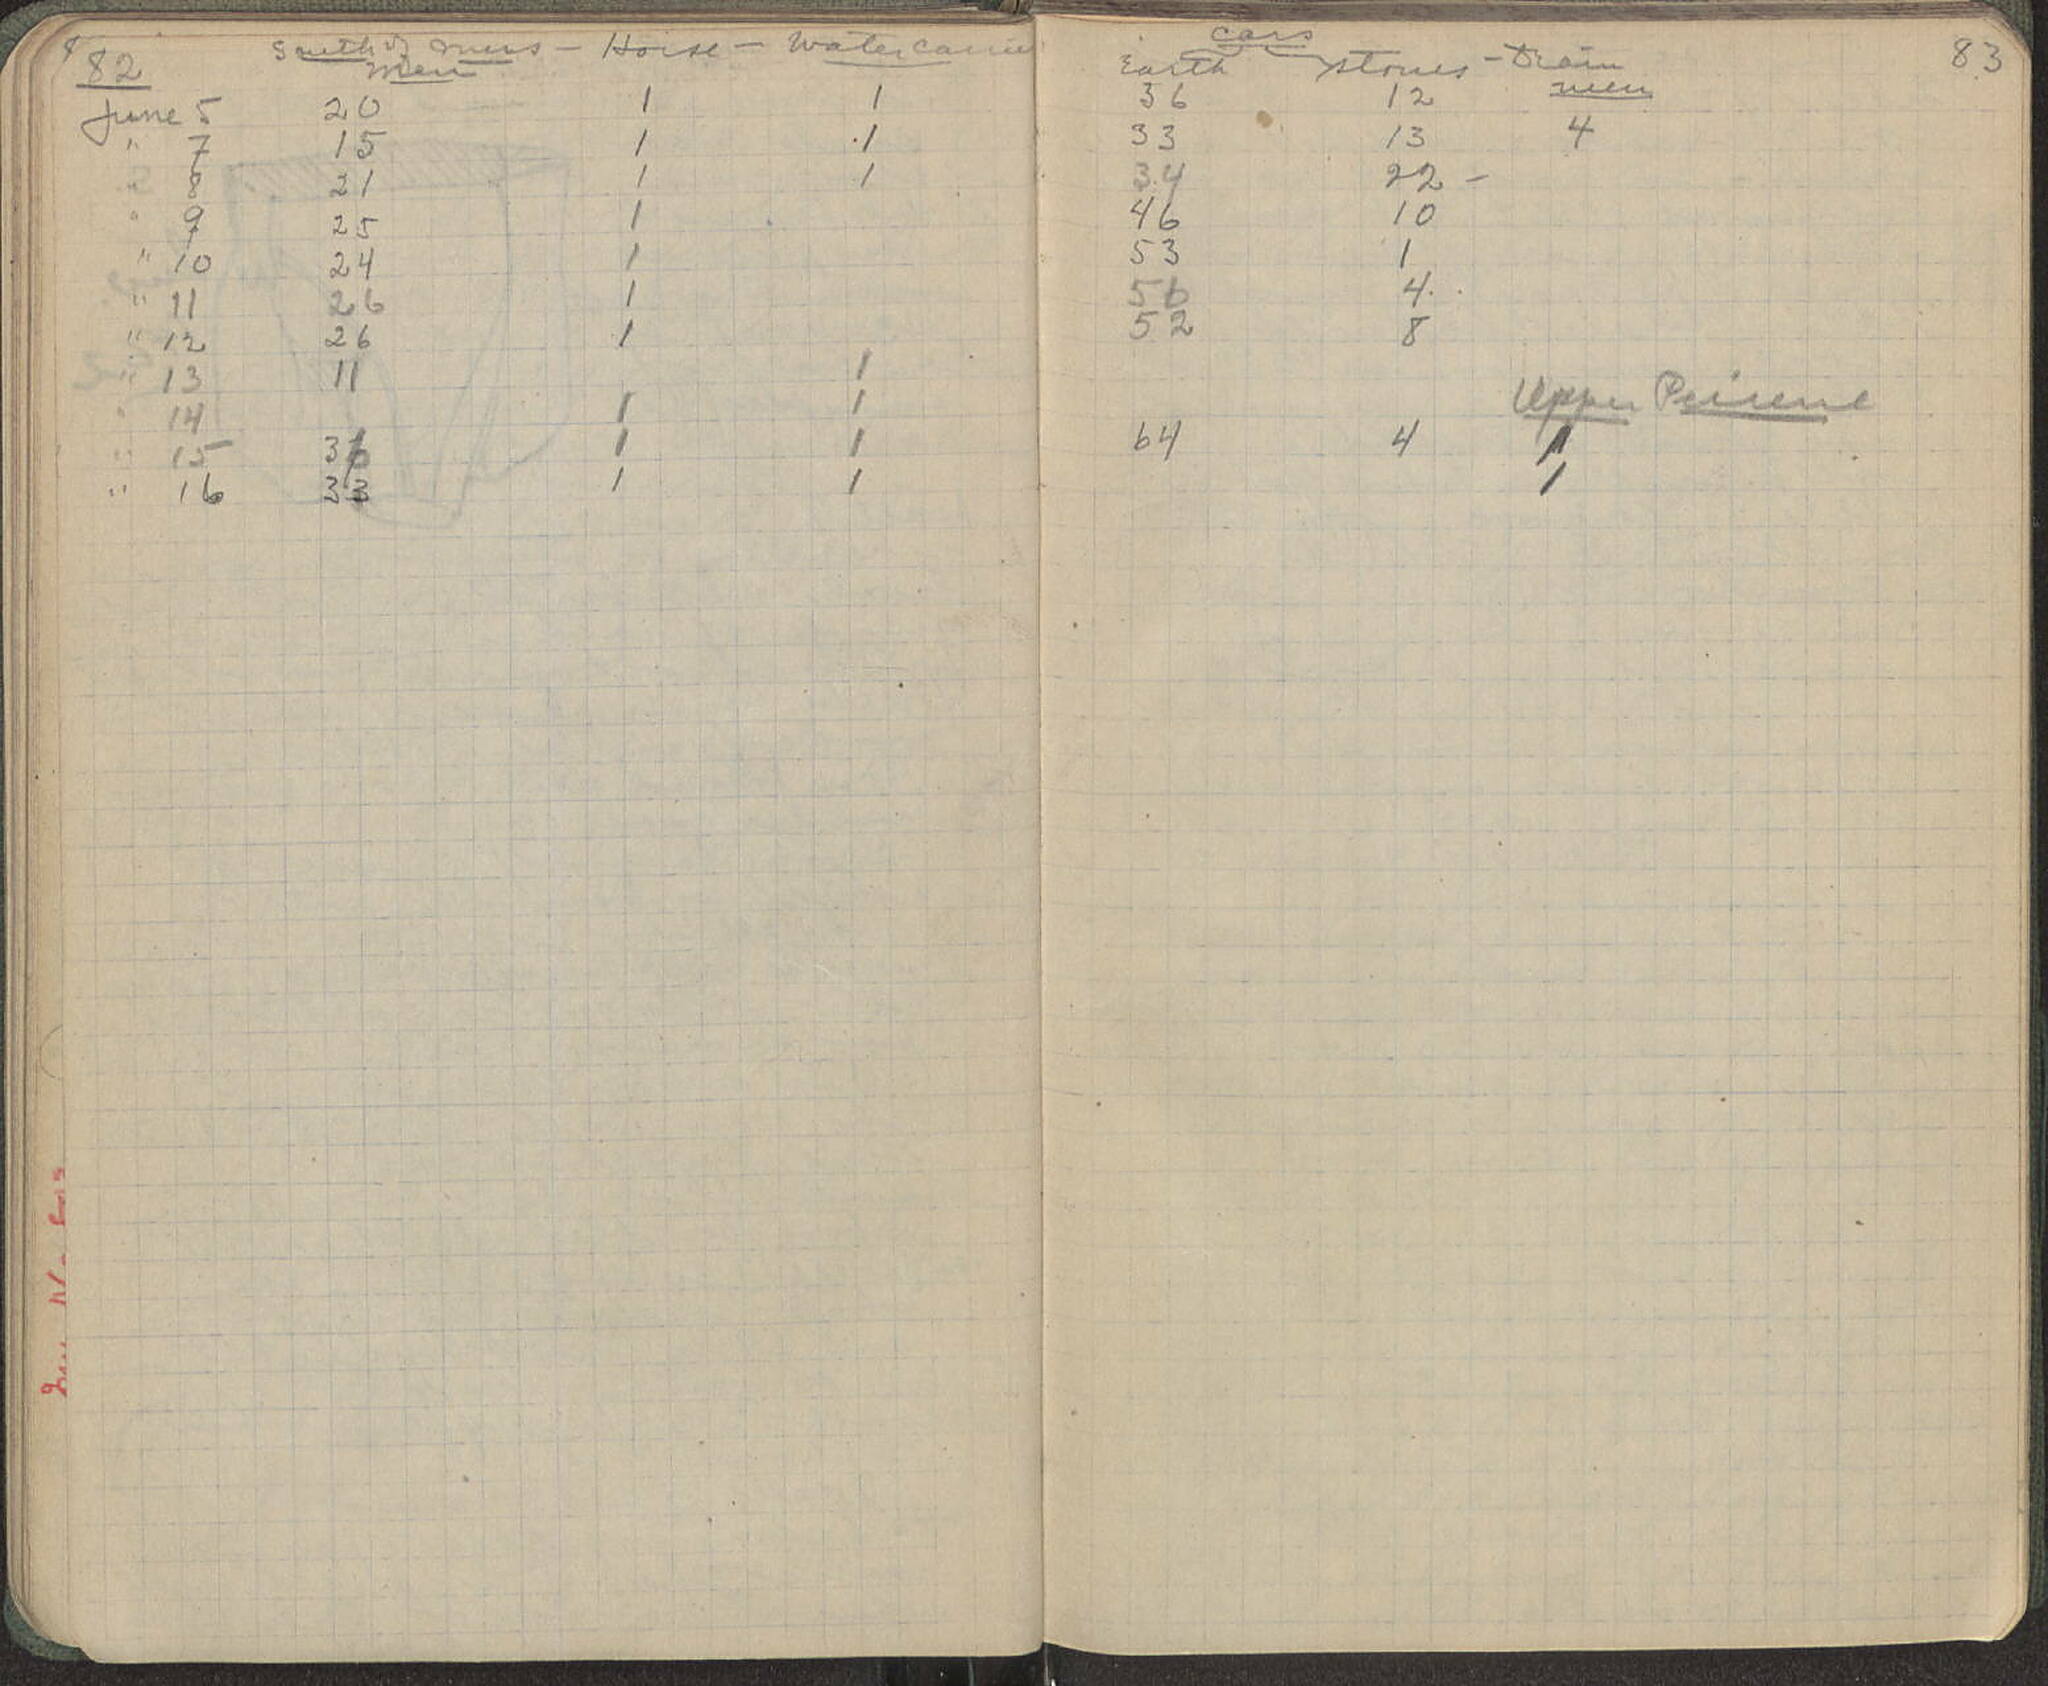 82
South of
men
Horse - Water
June 5 20 1 1
" 7 15 1 1
" 8 21 1 1
" 9 25 1
" 10 24 1
" 11 26 1
" 12 26 1
" 13 11 1
" 14 1 1
" 15 1 1
" 16 33 1 1
83
Cars
Earth Stones - Drain
men
36 12
33 13 4
34 22 -
46 10
53 1
56 4
52 8
Upper Peirene
64 4 1
1